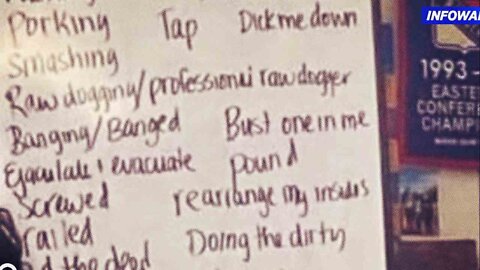 INFOWA
Porking Tap Dick me down
Smashing
Raw dogging/professional raw dogger
Banging/Banged Bust one in me
Ejaculate & evacuate pound
Screwed rearrange my insides
railed Doing the dirty
the deed
1993-
EASTE
CONFERE
CHAMPI